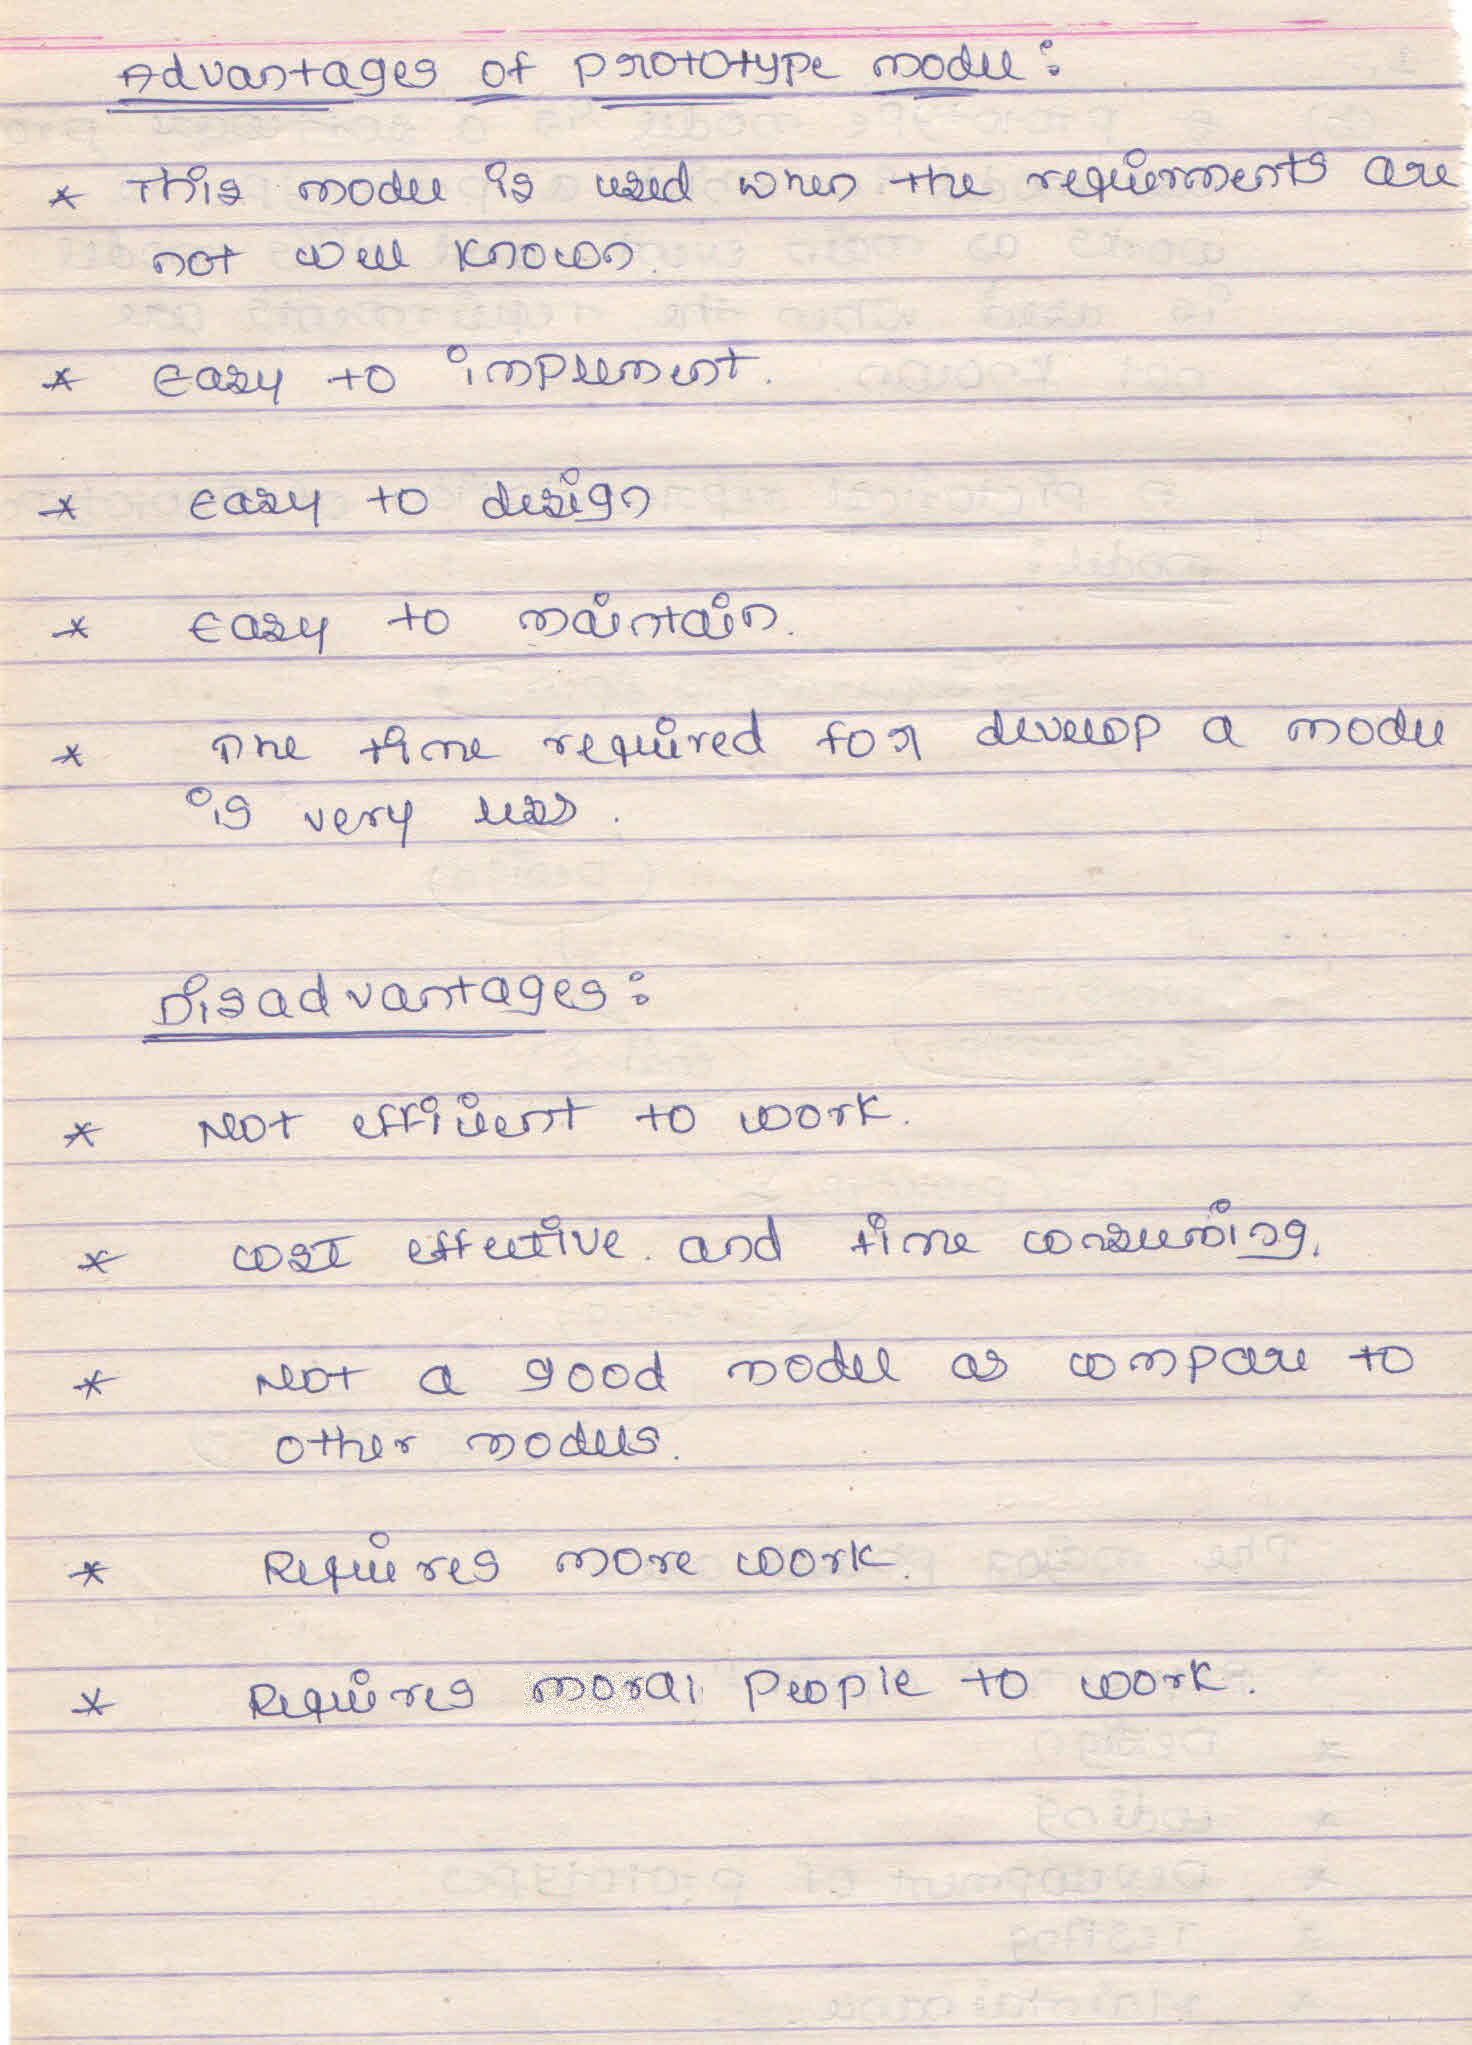 Advantages of prototype model:
* This model is used when the requirments are
not well known.
* Easy to implement.
* Easy to design
* Easy to maintain.
* The time required for develop a model
is very less.
Disadvantages:
* Not efficient to work.
* cost effective. and time consuming.
* Not a good model as compare to
other models.
* Requires more work.
* Requires moral people to work.